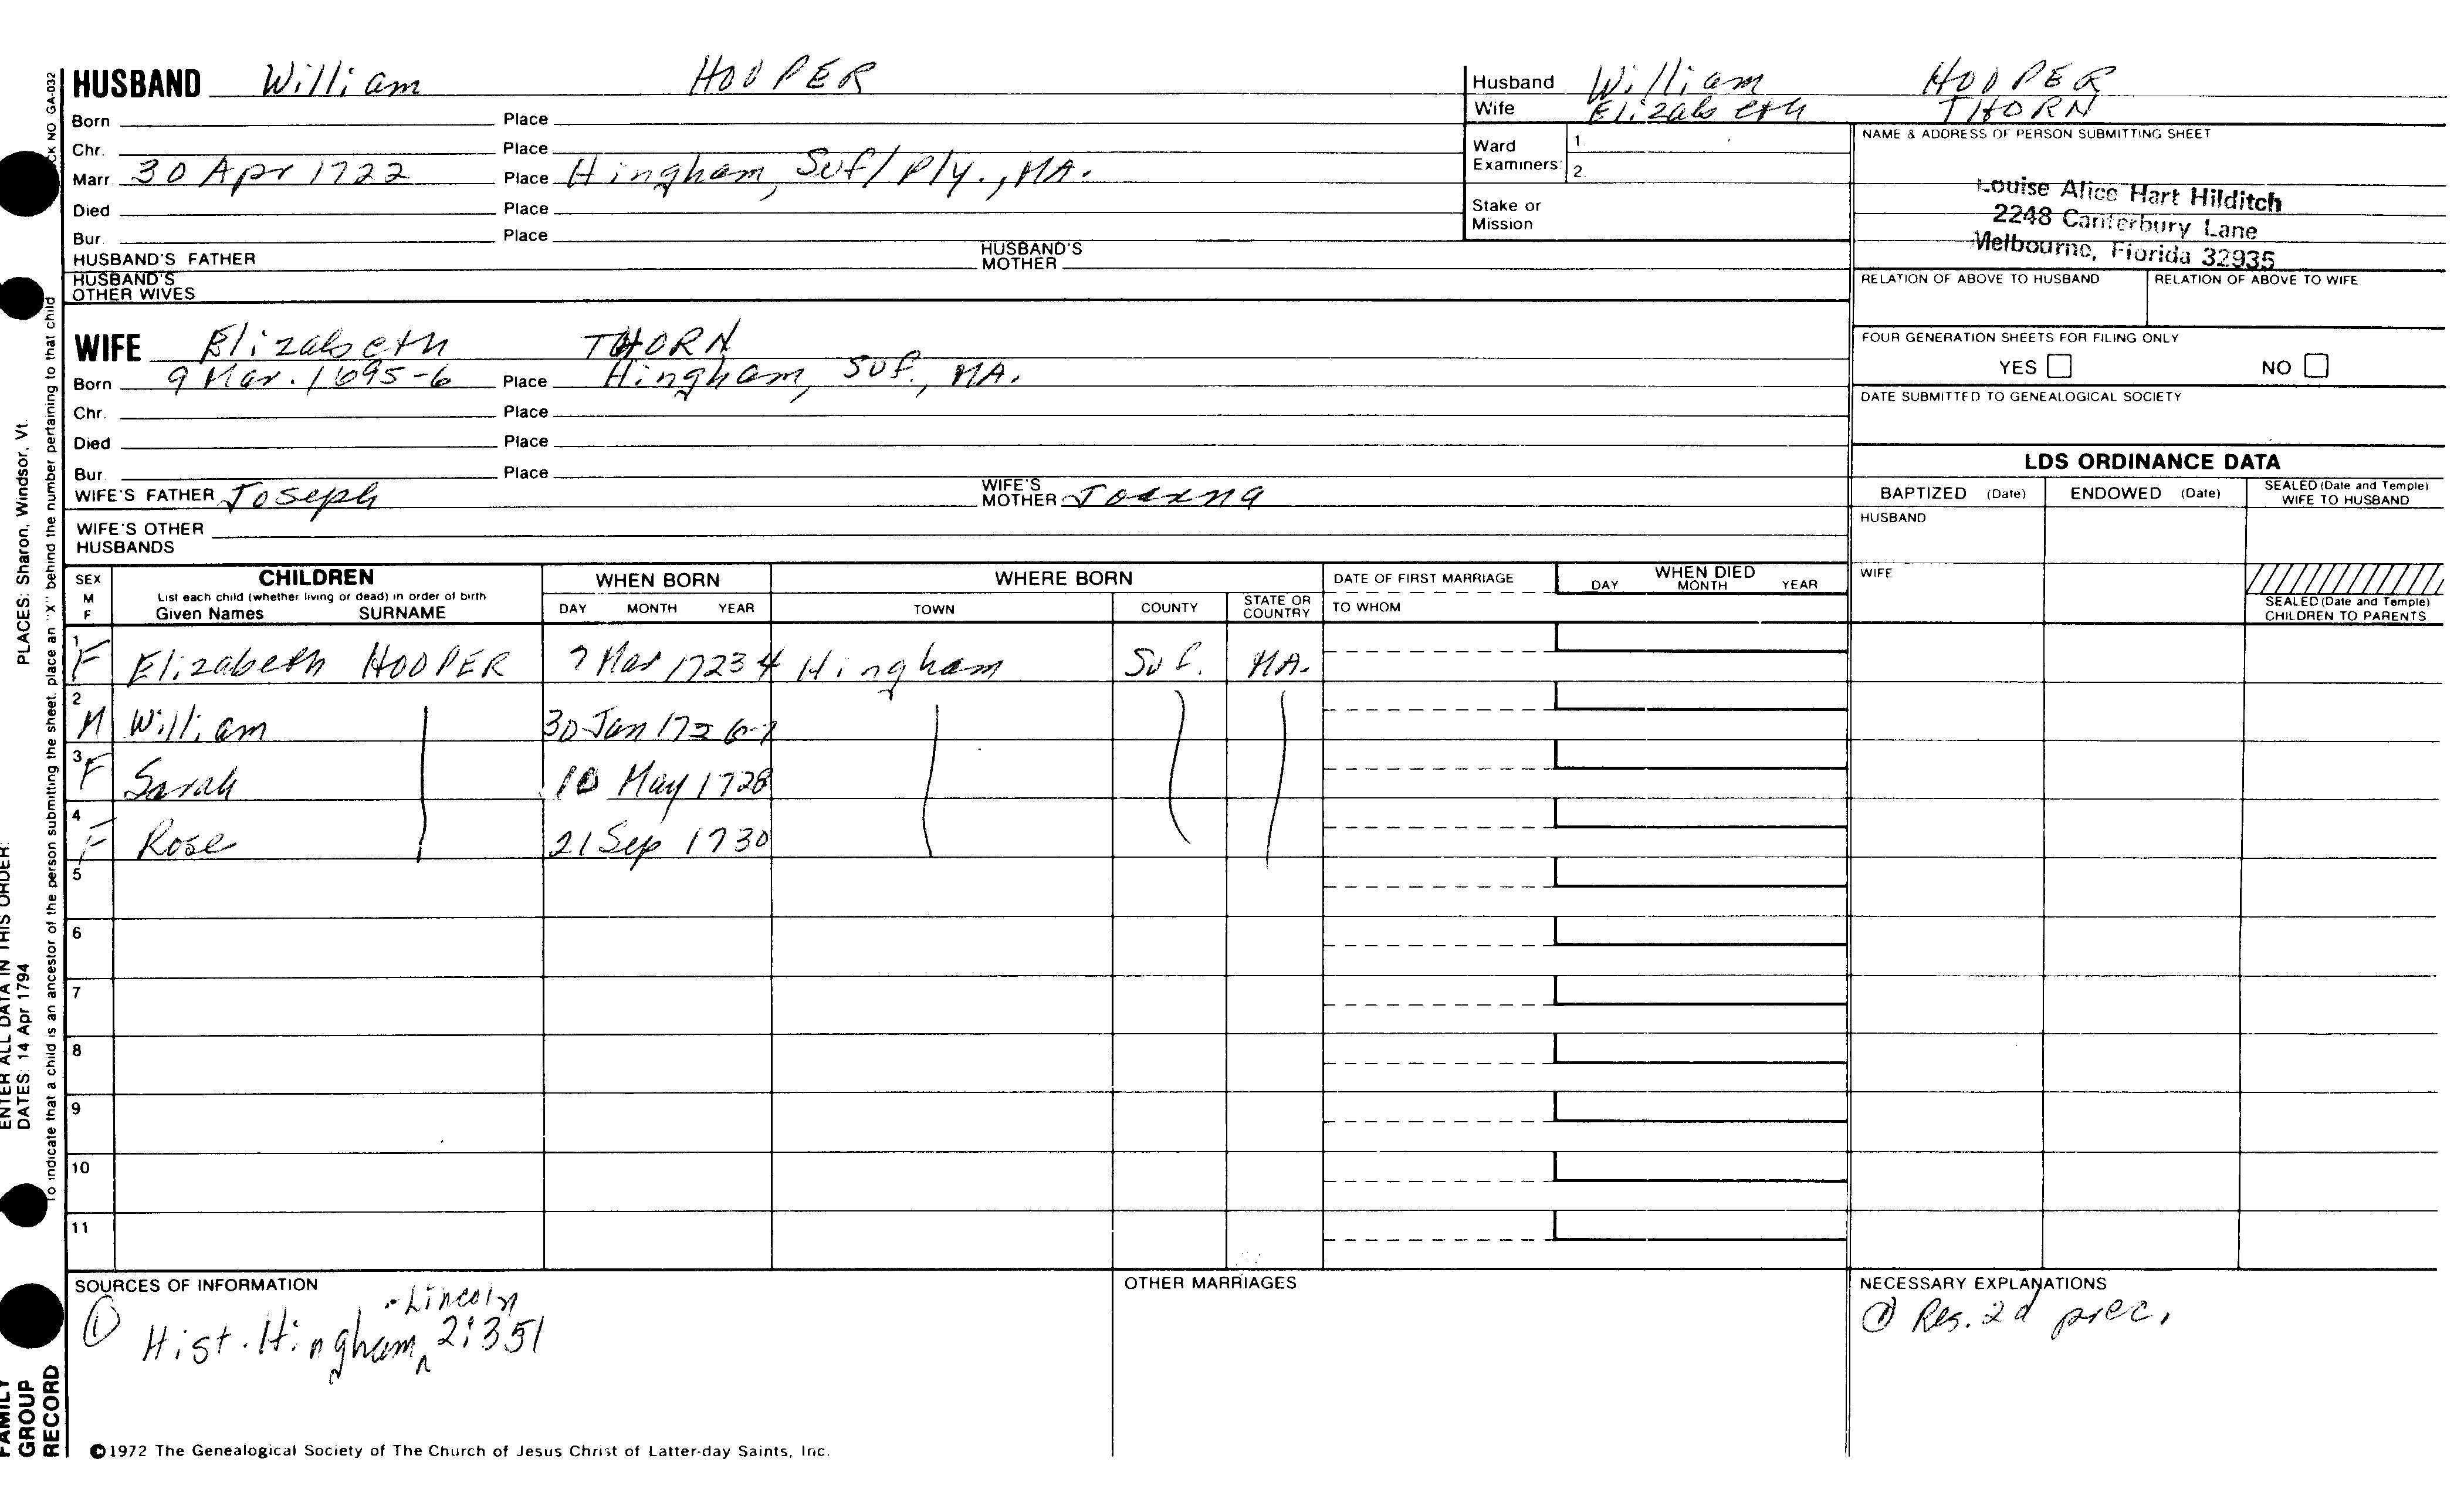 HUSBAND William HOOPER
Born Place
Chr. Place
Marr. 30 Apr 1722 Place Hingham, Suf/Ply., MA.
Died Place
Bur. Place
HUSBAND'S FATHER HUSBAND'S MOTHER
HUSBAND'S OTHER WIVES
WIFE Elizabeth THORN
Born 9 Mar. 1695-6 Place Hingham, Suf., MA.
Chr. Place
Died Place
Bur. Place
WIFE'S FATHER Joseph WIFE'S MOTHER Joanna
WIFE'S OTHER HUSBANDS
Husband William HOOPER
Wife Elizabeth THORN
Ward Examiners 1.
2.
Stake or Mission
NAME & ADDRESS OF PERSON SUBMITTING SHEET
Louise Alice Hart Hilditch
2248 Canterbury Lane
Melbourne, Florida 32935
RELATION OF ABOVE TO HUSBAND RELATION OF ABOVE TO WIFE
FOUR GENERATION SHEETS FOR FILING ONLY
YES NO
DATE SUBMITTED TO GENEALOGICAL SOCIETY
LDS ORDINANCE DATA
BAPTIZED (Date) ENDOWED (Date) SEALED (Date and Temple) WIFE TO HUSBAND
HUSBAND
WIFE
SEALED (Date and Temple) CHILDREN TO PARENTS
SEX M F CHILDREN WHEN BORN WHERE BORN DATE OF FIRST MARRIAGE WHEN DIED
List each child (whether living or dead) in order of birth
Given Names SURNAME DAY MONTH YEAR TOWN COUNTY STATE OR COUNTRY TO WHOM DAY MONTH YEAR
1 F Elizabeth HOOPER 7 Mar 1723 4 Hingham Suf. MA.
2 M William 30 Jan 1726-7
3 F Sarah 10 May 1728
4 F Rose 21 Sep 1730
5
6
7
8
9
10
11
SOURCES OF INFORMATION
① Hist. Hingham, 2:351
-Lincoln
OTHER MARRIAGES
NECESSARY EXPLANATIONS
① Res. 2d prec.
©1972 The Genealogical Society of The Church of Jesus Christ of Latter-day Saints, Inc.
CK NO GA-032
To indicate that a child is an ancestor of the person submitting the sheet, place an "X" behind the number pertaining to that child
PLACES: Sharon, Windsor, Vt.
ENTER ALL DATA IN THIS ORDER:
DATES: 14 Apr 1794
FAMILY
GROUP
RECORD